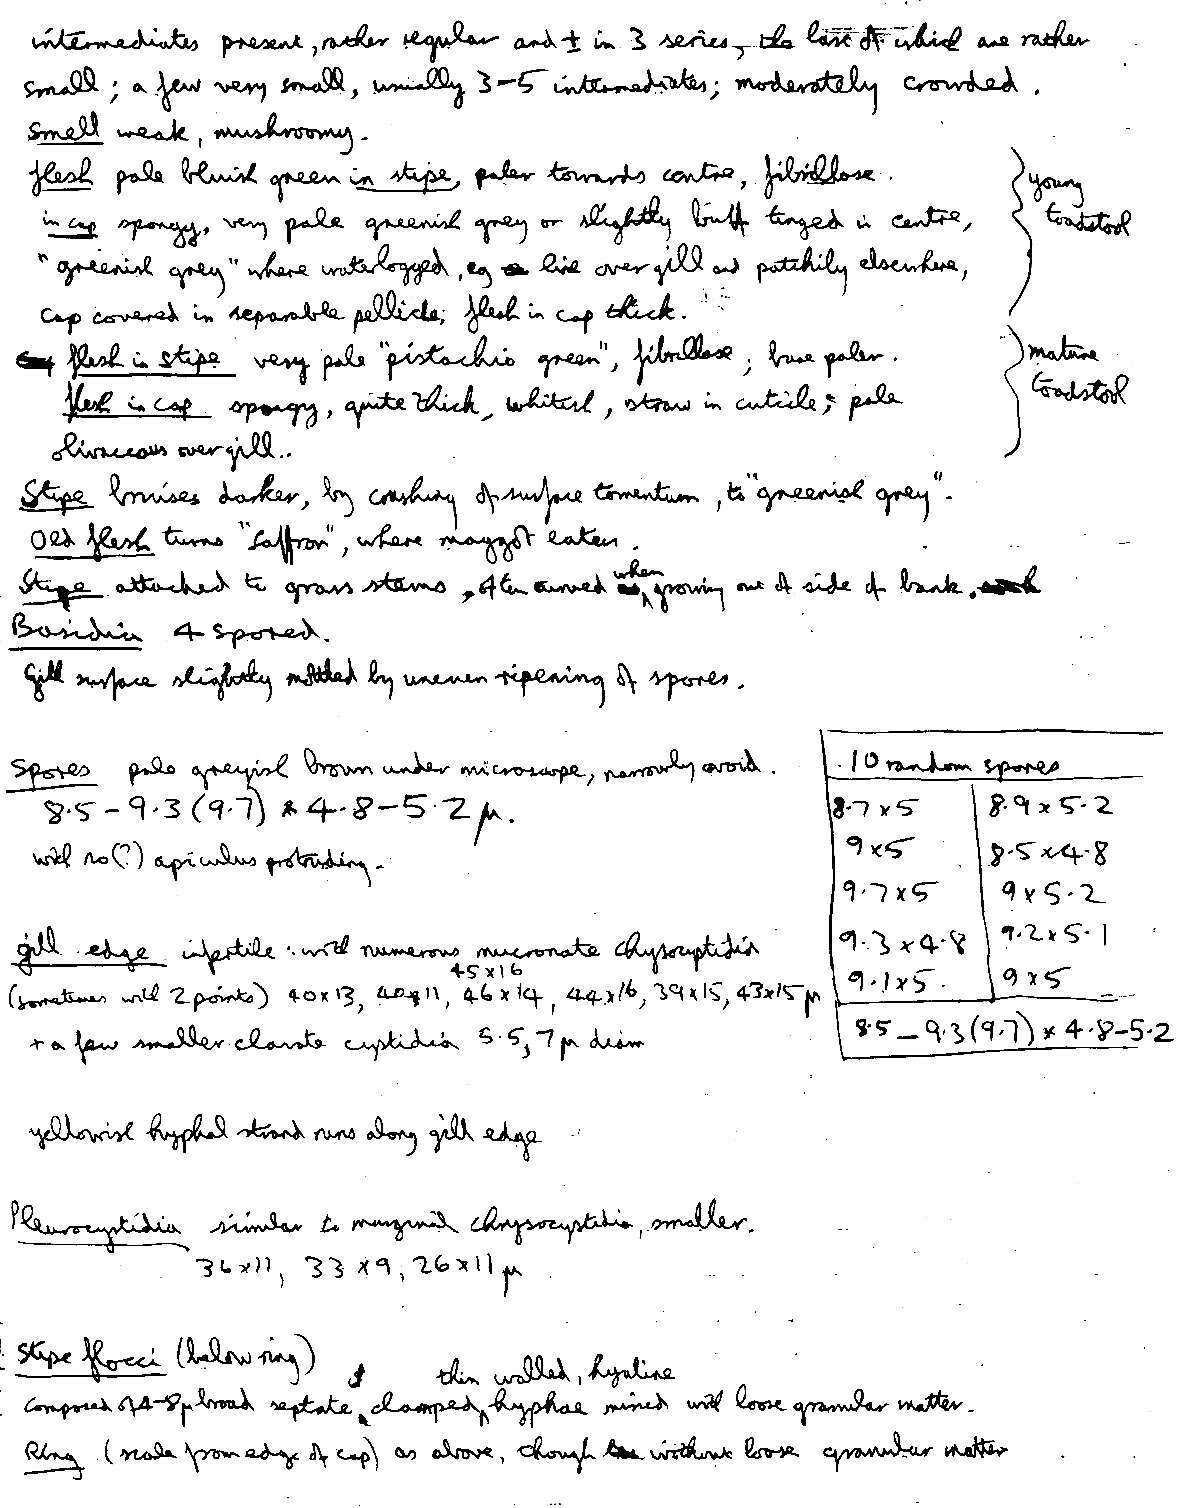 intermediates present, rather regular and ± in 3 series, the last of which are rather
small; a few very small, usually 3-5 intermediates; moderately crowded.
Smell weak, mushroomy.
flesh pale bluish green in stipe, paler towards centre, fibrillose.
in cap spongy, very pale greenish grey or slightly buff tinged in centre,
"greenish grey" where waterlogged, eg line over gill and patchily elsewhere,
cap covered in separable pellicle; flesh in cap thick.
young
toadstool
flesh in stipe very pale "pistachio green", fibrillose; base paler.
flesh in cap spongy, quite thick, whitish, straw in cuticle; pale
olivaceous over gill..
mature
toadstool
Stipe bruises darker, by crushing of surface tomentum, to "greenish grey".
Old flesh turns "saffron", where maggot eaten.
Stipe attached to grass stems, often curved when growing out of side of bank.
Basidia 4 spored.
Gill surface slightly mottled by uneven ripening of spores.
Spores pale greyish brown under microscope, narrowly ovoid.
8.5-9.3(9.7) x 4.8-5.2 µ.
with no(?) apiculus protruding.
10 random spores
8.7x5 8.9x5.2
9x5 8.5x4.8
9.7x5 9x5.2
9.3x4.8 9.2x5.1
9.1x5. 9x5
8.5-9.3(9.7) x 4.8-5.2
gill edge infertile: with numerous mucronate chrysocystidia
45x16
(sometimes with 2 points) 40x13, 40x11, 46x14, 44x16, 39x15, 43x15 µ
+ a few smaller clavate cystidia 5.5, 7 µ diam
yellowish hyphal strand runs along gill edge
Pleurocystidia similar to marginal chrysocystidia, smaller.
36x11, 33x9, 26x11 µ
Stipe flocci (below ring)
thin walled, hyaline
composed of 4-8µ broad septate, clamped, hyphae mixed with loose granular matter.
Ring (scale from edge of cap) as above, though without loose granular matter